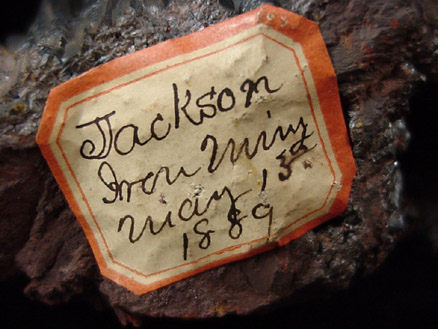 Jackson
Iron Mine
May, 1st
1889